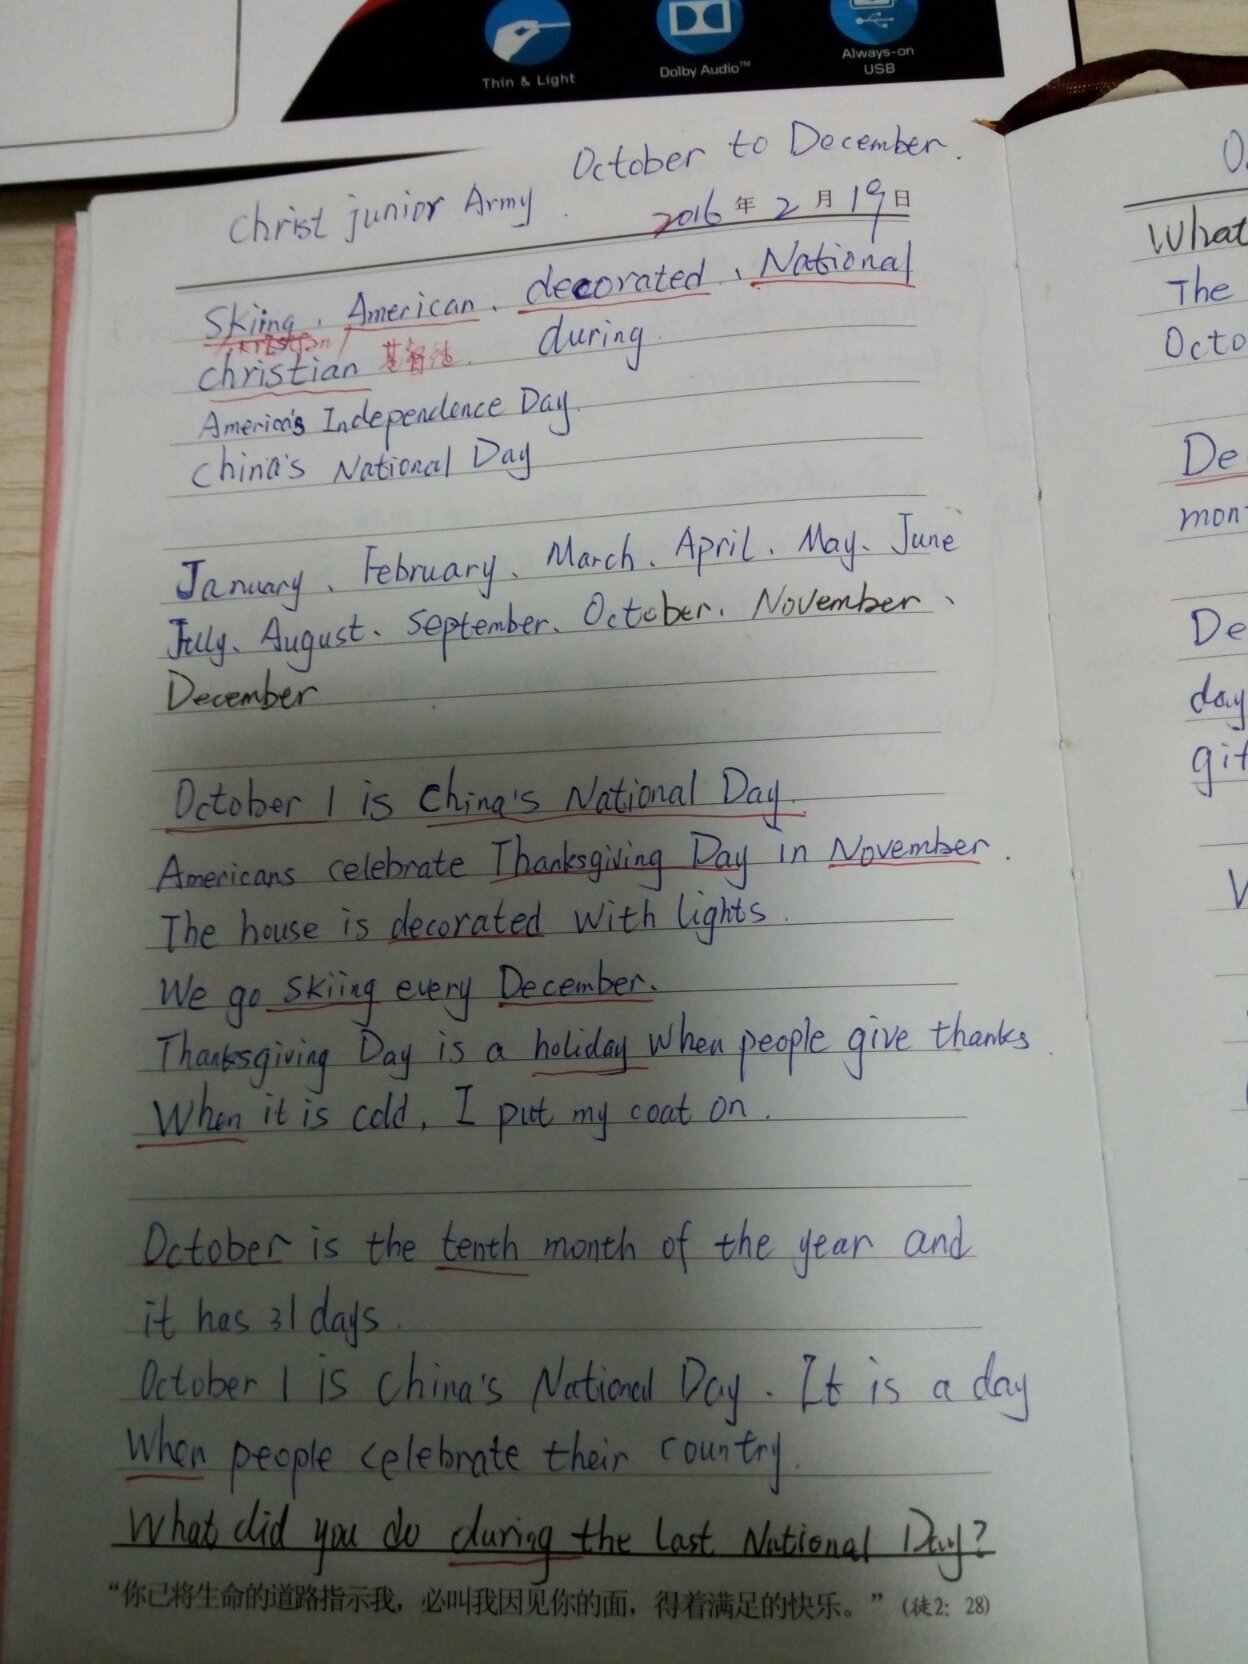 Thin & Light
Dolby Audio™
Always-on
USB
October to December.
Christ junior Army
2016 年 2 月 19 日
Skiing、American、decorated、National
christian during
America's Independence Day.
China's National Day
January、February、March、April、May、June
July、August、September、October、November、
December
October 1 is China's National Day.
Americans celebrate Thanksgiving Day in November.
The house is decorated with lights.
We go skiing every December.
Thanksgiving Day is a holiday when people give thanks.
When it is cold, I put my coat on.
October is the tenth month of the year and
it has 31 days.
October 1 is China's National Day. It is a day
when people celebrate their country.
What did you do during the last National Day?
“你已将生命的道路指示我，必叫我因见你的面，得着满足的快乐。”（徒2：28）
What
The
Octo
De
mon
De
day
gif